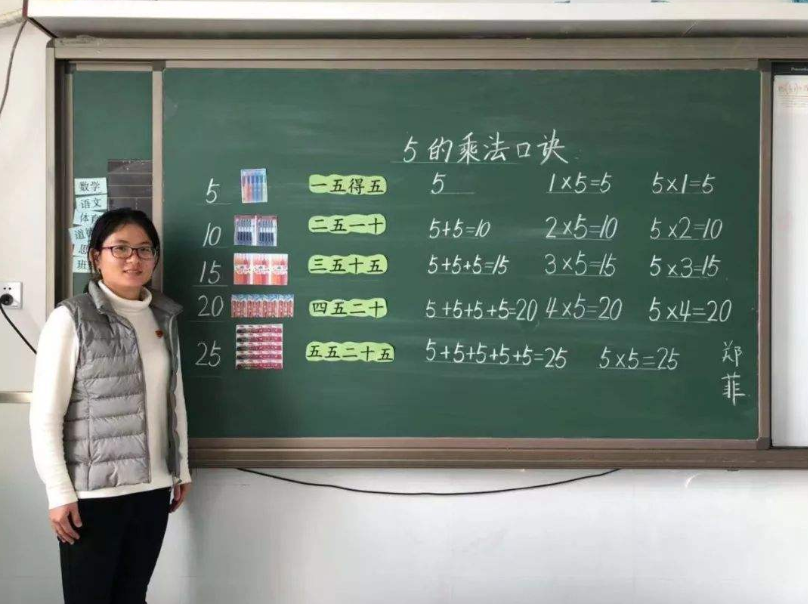 5的乘法口诀
5 一五得五 5 1×5=5 5×1=5
10 二五一十 5+5=10 2×5=10 5×2=10
15 三五十五 5+5+5=15 3×5=15 5×3=15
20 四五二十 5+5+5+5=20 4×5=20 5×4=20
25 五五二十五 5+5+5+5+5=25 5×5=25
郑菲
数学
语文
体育